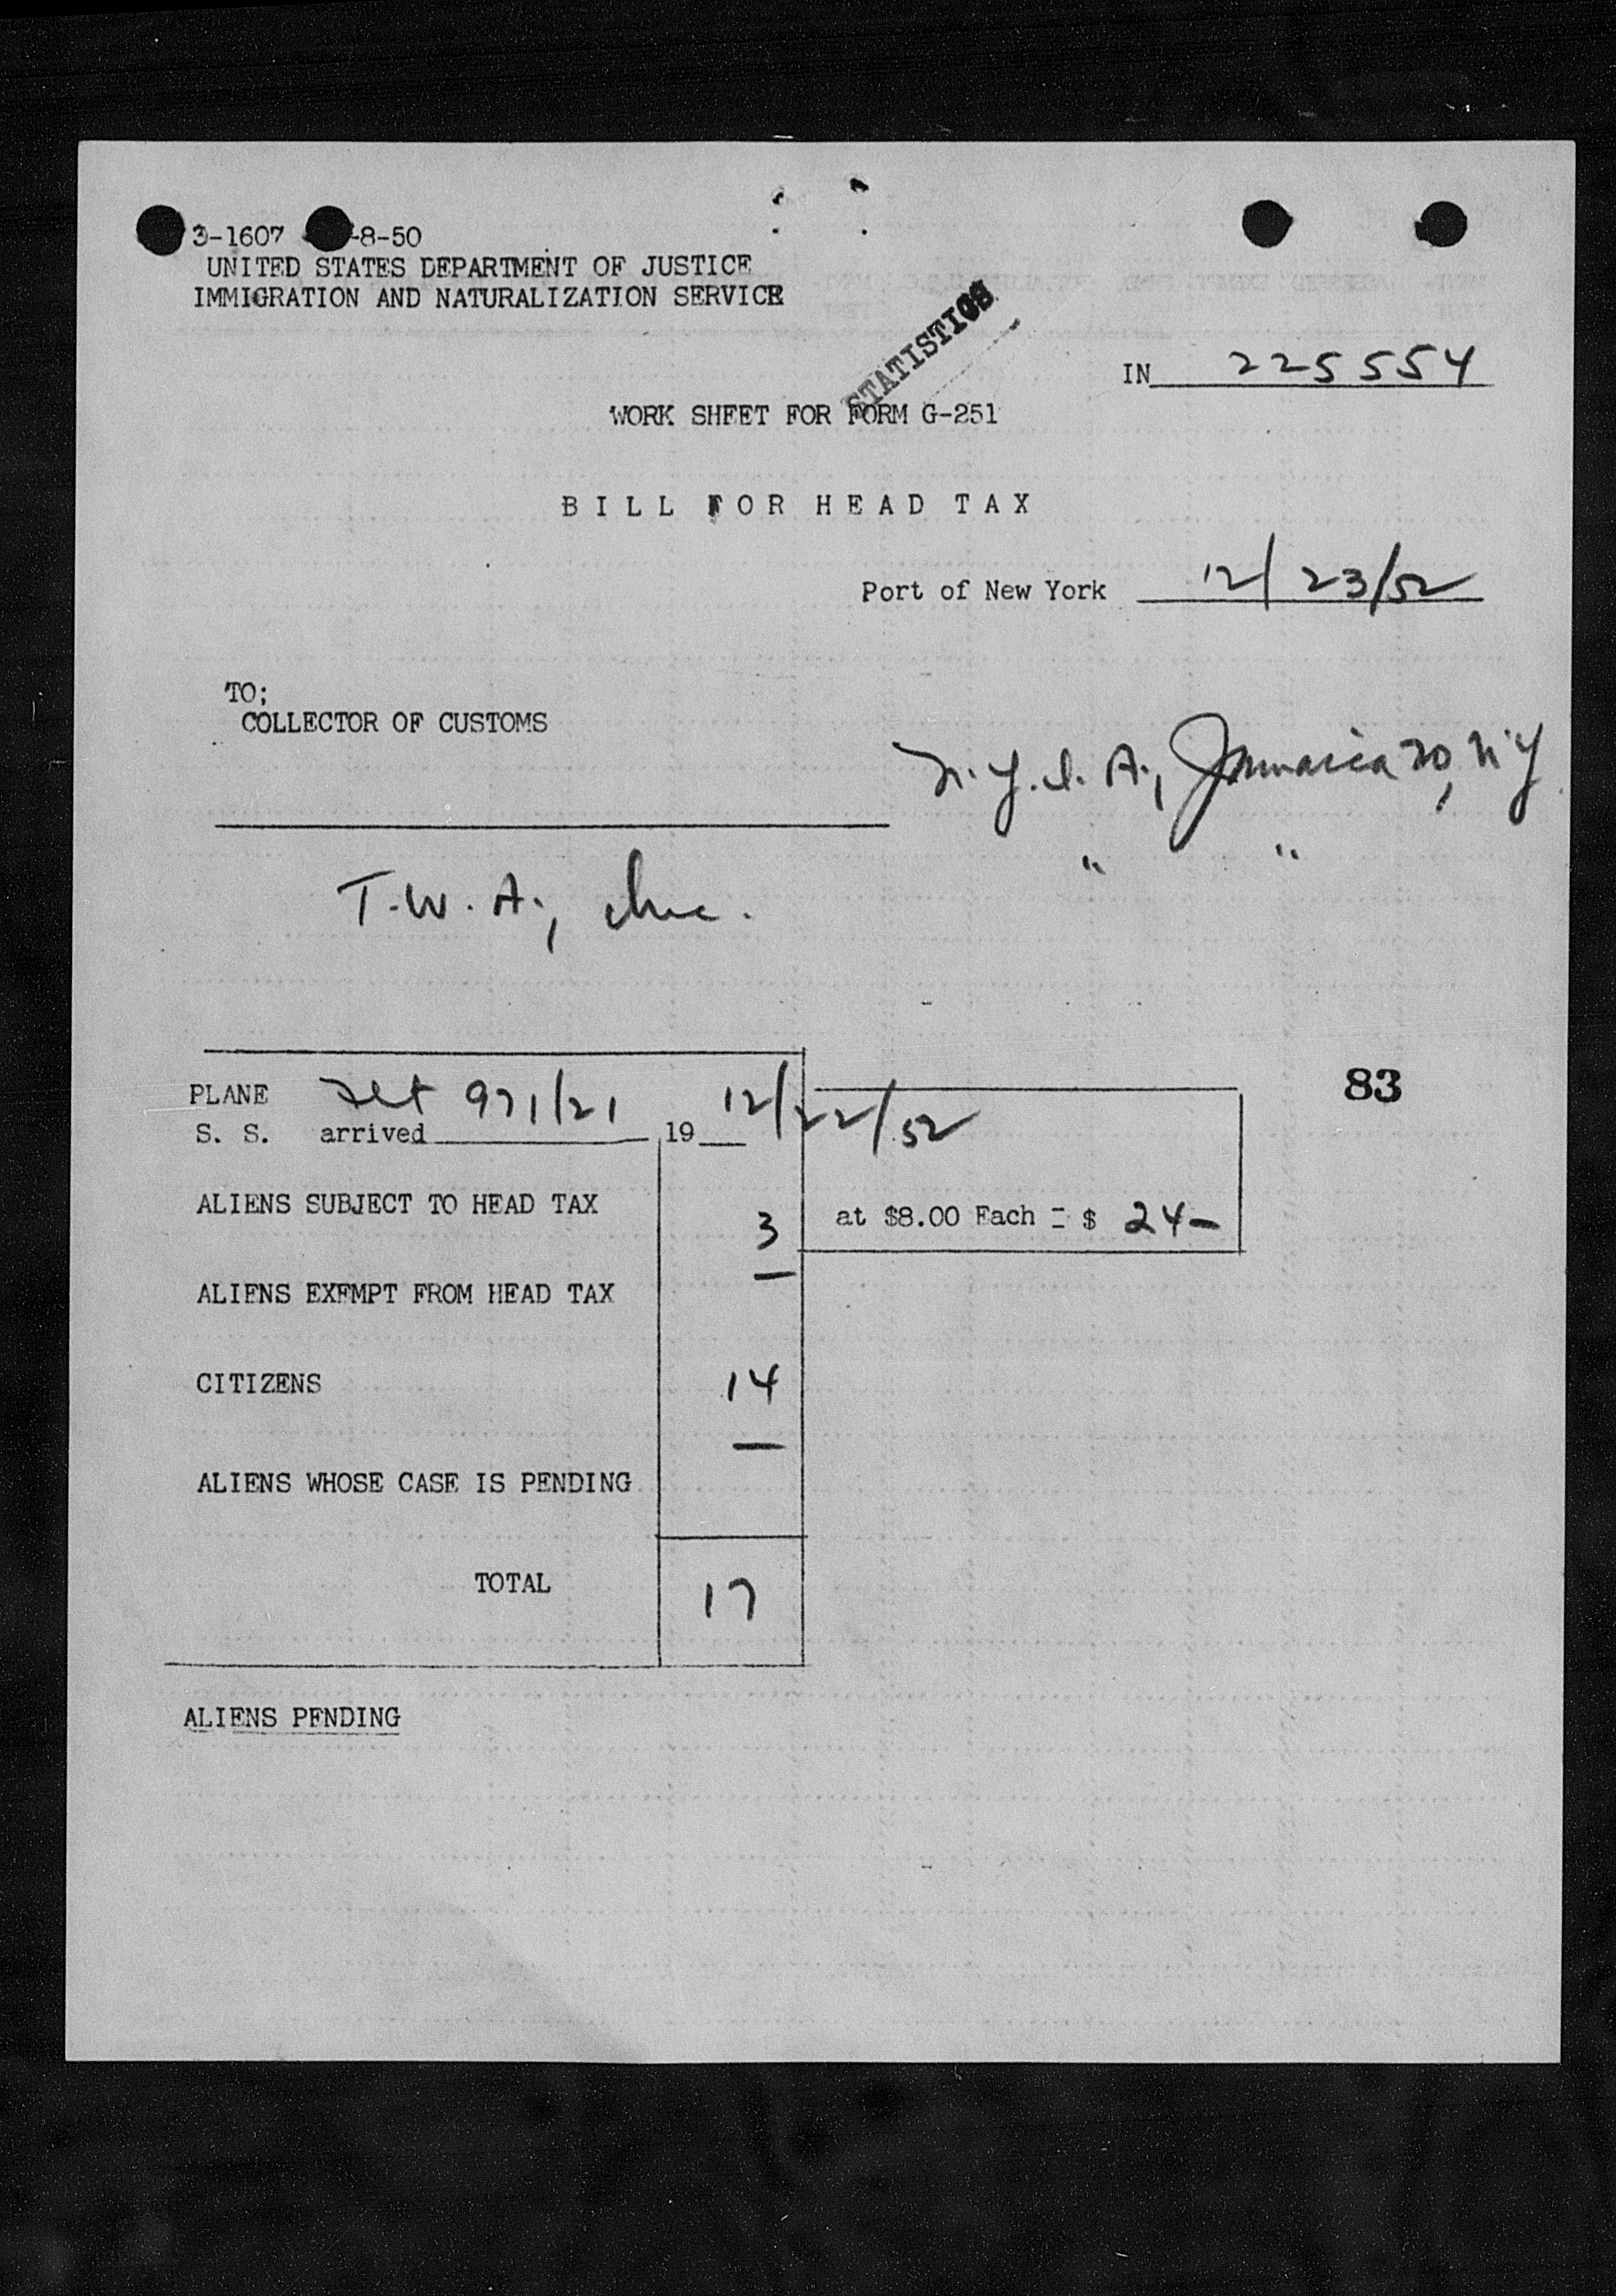 3-1607 -8-50
UNITED STATES DEPARTMENT OF JUSTICE
IMMIGRATION AND NATURALIZATION SERVICE
STATISTICS
IN 225554
WORK SHEET FOR FORM G-251
BILL FOR HEAD TAX
Port of New York 12/23/52
TO;
COLLECTOR OF CUSTOMS
N.Y.I.A., Jamaica 30, N.Y
" "
T.W.A., Inc.
PLANE Flt 971/21 12/22/52
S. S. arrived 19
83
ALIENS SUBJECT TO HEAD TAX 3 at $8.00 Each = $ 24-
ALIENS EXEMPT FROM HEAD TAX —
CITIZENS 14
ALIENS WHOSE CASE IS PENDING —
TOTAL 17
ALIENS PENDING